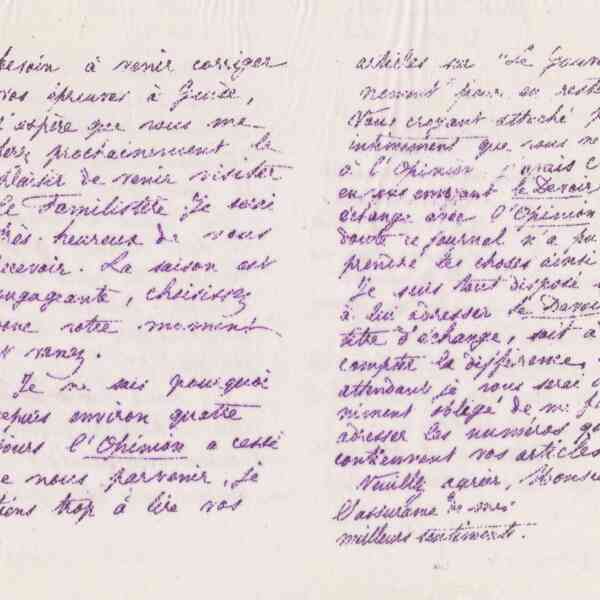 besoin à venir corriger
vos épreuves à Guise,
j'espère que vous me
ferez prochainement le
plaisir de venir visiter
le Familistère je serai
très heureux de vous
recevoir. La saison est
engageante, choisissez
donc votre moment
et venez.
Je ne sais pourquoi
depuis environ quatre
jours l'Opinion a cessé
de nous parvenir, je
tiens trop à lire vos
articles sur "Le Gouver
nement" pour en reste
Vous croyant attaché
intimement que vous ne
à l'Opinion j'avais
en vous envoyant le Devoir
échange avec l'Opinion
doute ce journal n'a pu
prendre les choses ainsi
Je suis tout disposé
à lui adresser le Devoir
titre d'échange, soit à
compter la différence.
attendant je vous serai
niment obligé de me f
adresser les numéros qu
contiennent vos articles
Veuillez agréer, Monsie
l'assurance de mes
meilleurs sentiments.